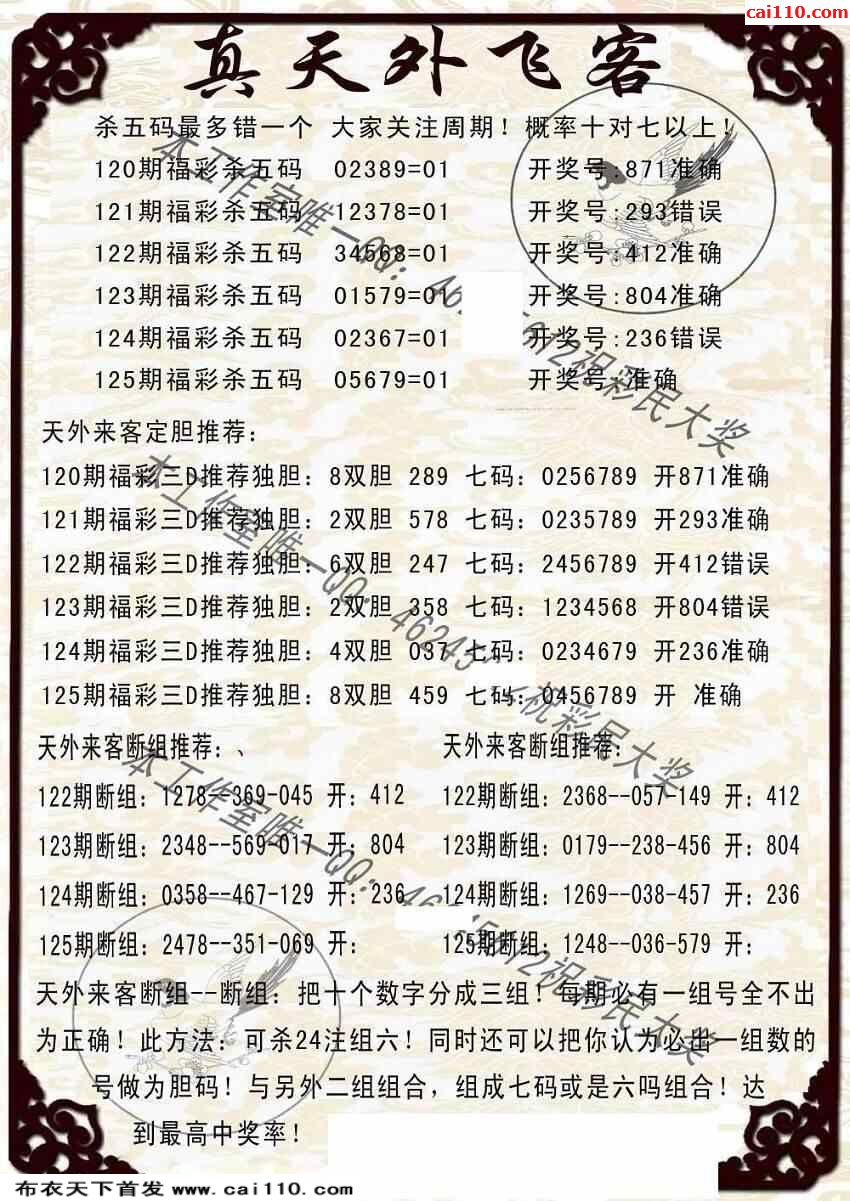 cai110.com
真天外飞客
杀五码最多错一个 大家关注周期！概率十对七以上！
120期福彩杀五码 02389=01 开奖号:871准确
121期福彩杀五码 12378=01 开奖号:293错误
122期福彩杀五码 34568=01 开奖号:412准确
123期福彩杀五码 01579=01 开奖号:804准确
124期福彩杀五码 02367=01 开奖号:236错误
125期福彩杀五码 05679=01 开奖号 准确
天外来客定胆推荐：
120期福彩三D推荐独胆：8双胆 289 七码：0256789 开871准确
121期福彩三D推荐独胆：2双胆 578 七码：0235789 开293准确
122期福彩三D推荐独胆：6双胆 247 七码：2456789 开412错误
123期福彩三D推荐独胆：2双胆 358 七码：1234568 开804错误
124期福彩三D推荐独胆：4双胆 037 七码：0234679 开236准确
125期福彩三D推荐独胆：8双胆 459 七码：0456789 开 准确
天外来客断组推荐：、 天外来客断组推荐：
122期断组：1278--369-045 开：412 122期断组：2368--057-149 开：412
123期断组：2348--569-017 开：804 123期断组：0179--238-456 开：804
124期断组：0358--467-129 开：236 124期断组：1269--038-457 开：236
125期断组：2478--351-069 开： 125期断组：1248--036-579 开：
天外来客断组--断组：把十个数字分成三组！每期必有一组号全不出
为正确！此方法：可杀24注组六！同时还可以把你认为必出一组数的
号做为胆码！与另外二组组合，组成七码或是六吗组合！达
到最高中奖率！
本工作室唯一QQ：
祝彩民大奖
本工作室唯一QQ：
祝彩民大奖
本工作室唯一QQ：
祝彩民大奖
布衣天下首发 www.cai110.com